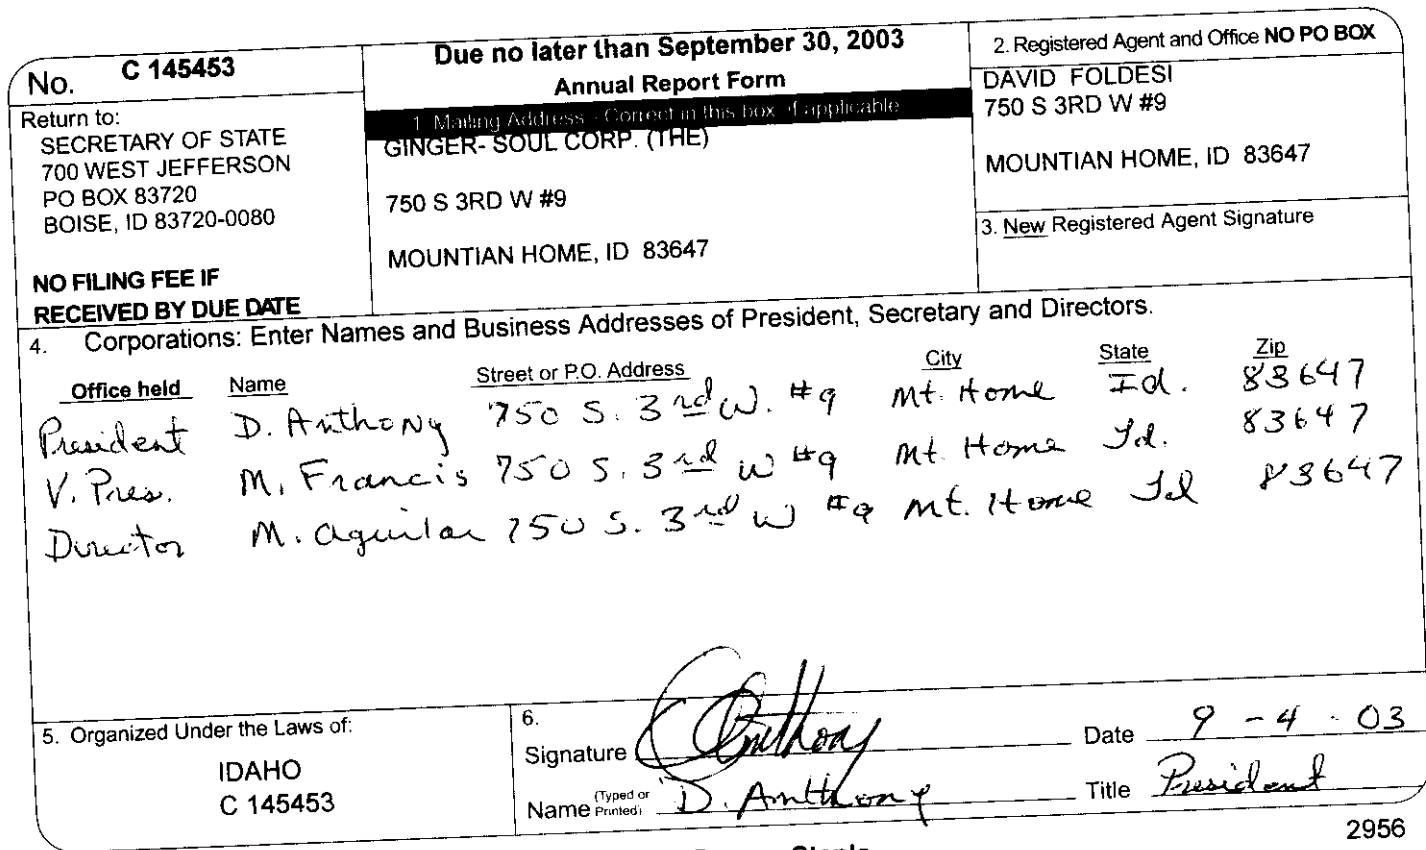 No. C 145453
Return to:
SECRETARY OF STATE
700 WEST JEFFERSON
PO BOX 83720
BOISE, ID 83720-0080
NO FILING FEE IF
RECEIVED BY DUE DATE
Due no later than September 30, 2003
Annual Report Form
1. Mailing Address - Correct in this box if applicable
GINGER- SOUL CORP. (THE)
750 S 3RD W #9
MOUNTIAN HOME, ID 83647
2. Registered Agent and Office NO PO BOX
DAVID FOLDESI
750 S 3RD W #9
MOUNTIAN HOME, ID 83647
3. New Registered Agent Signature
4. Corporations: Enter Names and Business Addresses of President, Secretary and Directors.
Office held Name Street or P.O. Address City State Zip
President D. Anthony 750 S. 3rd W. #9 Mt. Home Id. 83647
V. Pres. M. Francis 750 S. 3rd W #9 Mt. Home Id. 83647
Director M. Aguilar 750 S. 3rd W #9 Mt. Home Id 83647
5. Organized Under the Laws of:
IDAHO
C 145453
6.
Signature Anthony Date 9-4-03
Name (Typed or Printed) D. Anthony Title President
2956